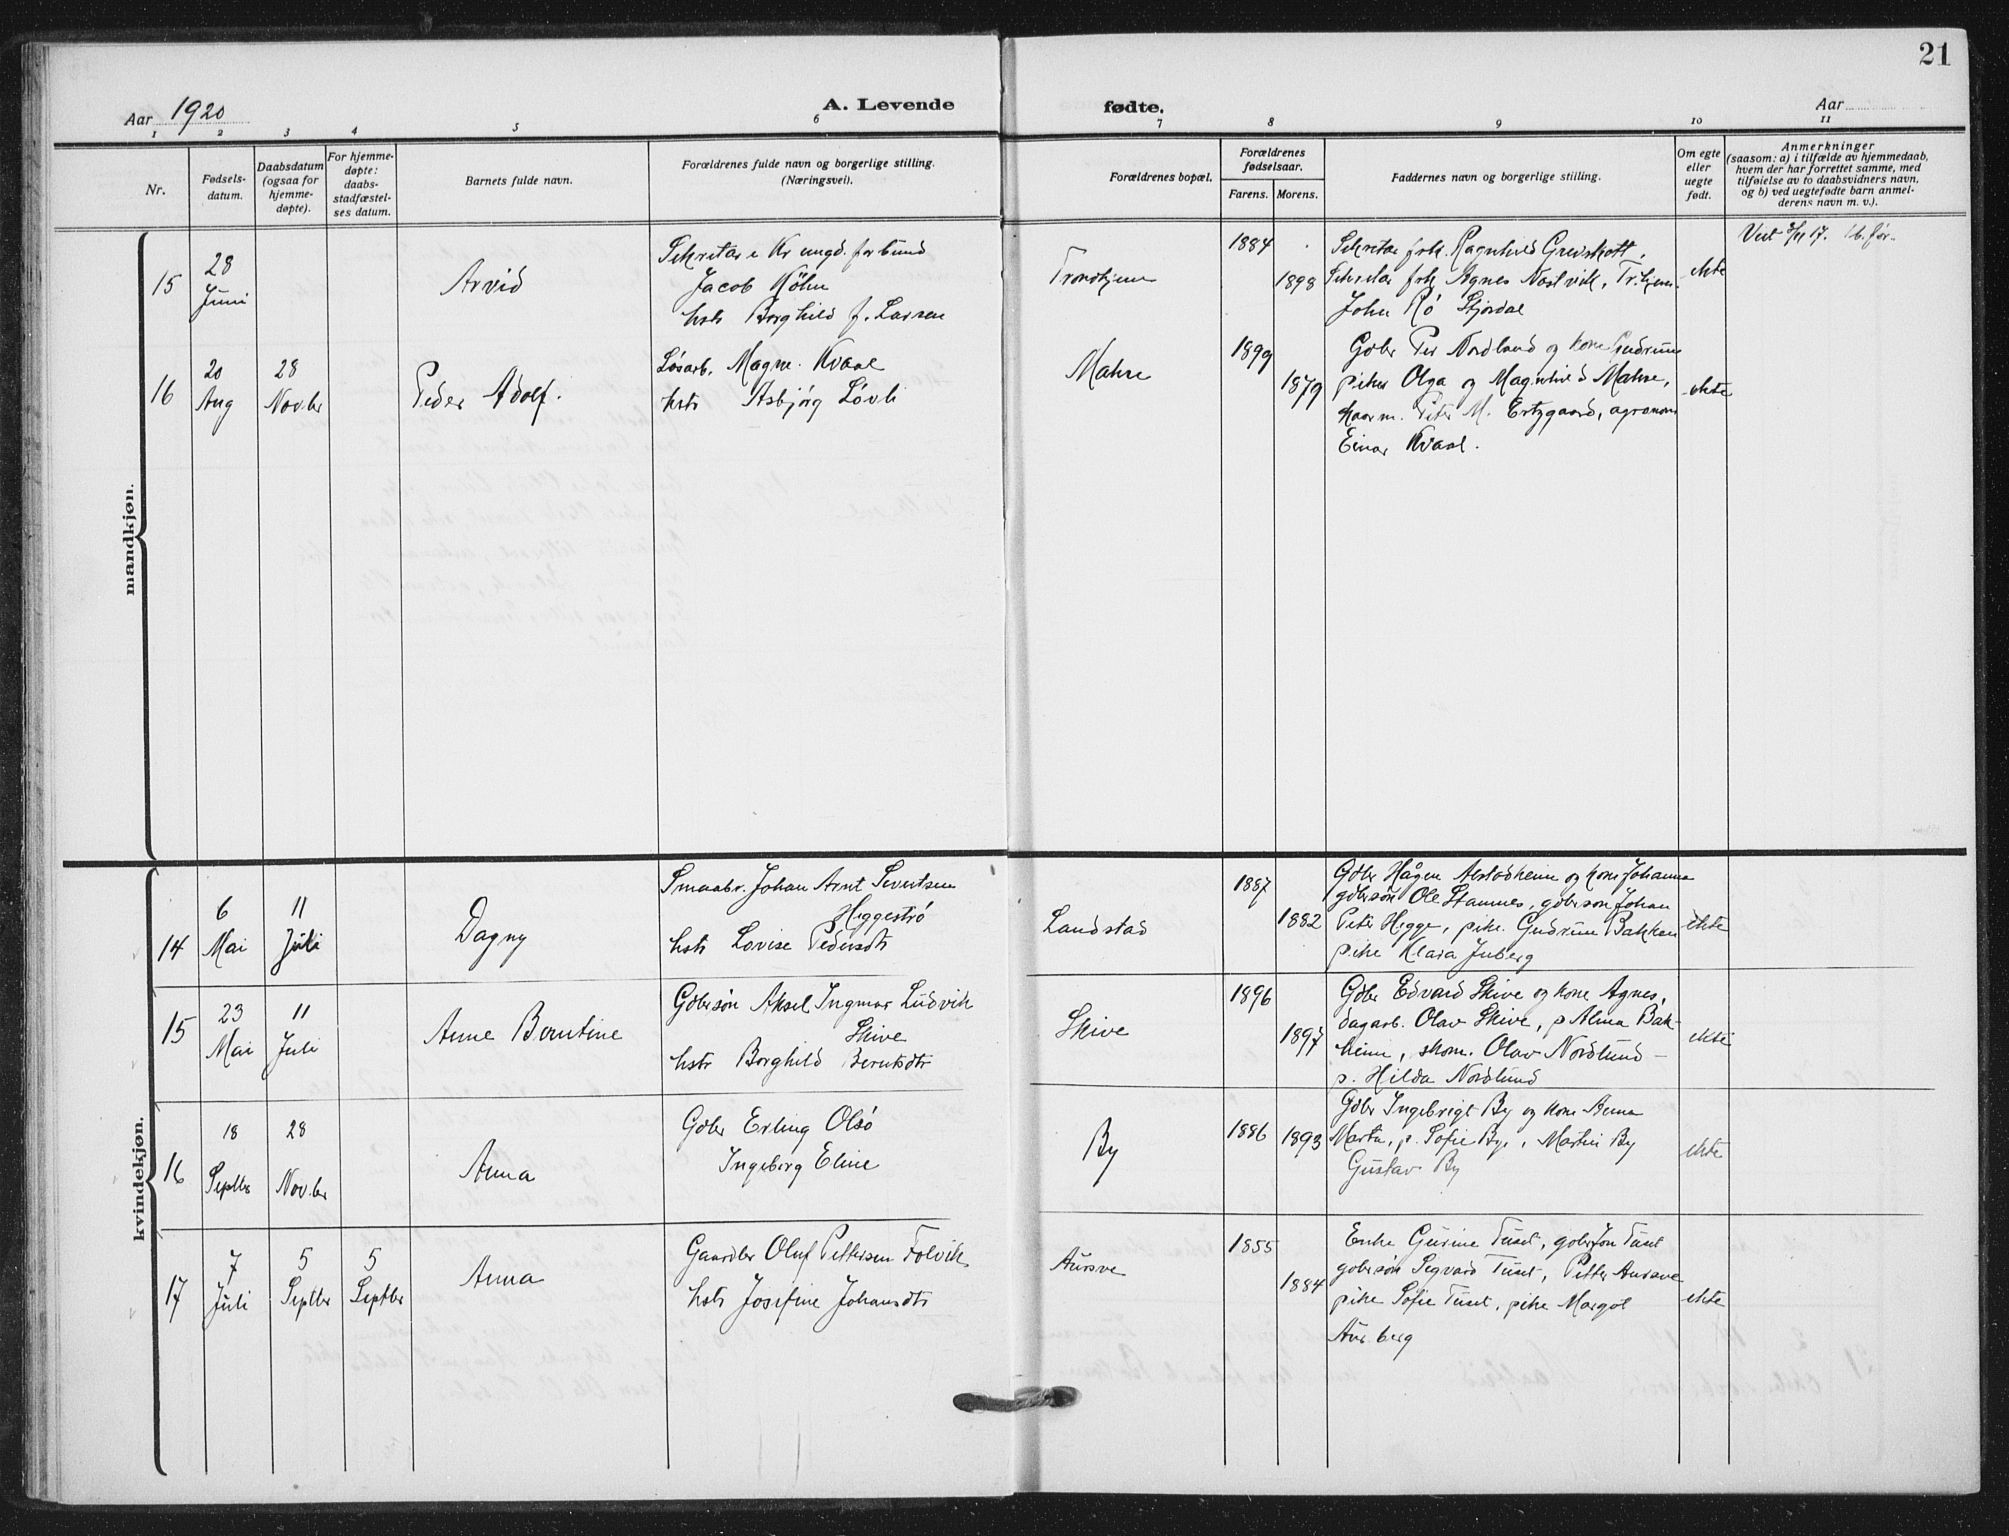 21
Aar 1920
A. Levende
fødte.
Aar
1 2 3 4 5 6 7 8 9 10 11
Nr.
Fødsels-
datum.
Daabsdatum
(ogsaa for
hjemme-
døpte).
For hjemme-
døpte:
daabs-
stadfæstel-
ses datum.
Barnets fulde navn.
Forældrenes fulde navn og borgerlige stilling.
(Næringsvei).
Forældrenes bopæl.
Forældrenes
fødselsaar.
Farens. Morens.
Faddernes navn og borgerlige stilling.
Om egte
eller
uegte
født.
Anmerkninger
(saasom: a) i tilfælde av hjemmedaab,
hvem der har forrettet samme, med
tilføielse av to daabsvidners navn,
og b) ved uegtefødte barn anmel-
derens navn m. v.).
mandkjøn.
15
28
Juni
Arvid
Sekretær i Kr ungd. forbund
Jacob Köhn
hstr Borghild f. Larsen
Trondhjem
1884
1898
Sekretær frk. Ragnhild
Sekretær frk Agnes Nostvik, Tr.hjem
John Rö Stjørdal
ekte
16
20
Aug
28
Novbr
Peder Adolf.
Løsarb. Magne Kvaal
hstr Asbjørg Løvli
Mahre
1899
1879
Gdbr Per Nordland og kone Gudrun
piker Olga og Magnhild Mahre,
Peter M. Ertzgaard, agronom
Einar Kvaal.
ekte
kvindekjøn.
14
6
Mai
11
Juli
Dagny
Smaabr. Johan Arnt Severtsen
Heggestrø
hstr Lovise Pedersdtr
Landstad
1887
1882
Gdbr Hågen Aerstadheim og kone Johanna
gdbrsøn Ole Stamnes, gdbrsøn Johan
Peter Hegge, pike Gudrun Bakken
pike Klara Juberg
ekte
15
23
Mai
11
Juli
Anne Berntine
Gdbrsøn Aksel Ingmar Ludvik
Skive
hstr Borghild Berntsdtr
Skive
1896
1897
Gdbr Edvard Skive og kone Agnes,
dagarb. Olav Skive, p Alma Bak-
heim, skom. Olav Nordlund -
p. Hilda Nordlund
ekte
16
18
Septbr
28
Novbr
Anna
Gdbr Erling Olsø
Ingeborg Eline
By
1886
1893
Gdbr Ingebrigt By og kone Anna
Marta, p. Sofie By, Martin By
Gustav By
ekte
17
7
Juli
5
Septbr
5
Septbr
Anna
Gaardbr Oluf Pettersen Folvik
hstr Josefine Johansdtr
Aursve
1855
1884
Enke Gurine Tuset, gdbr Jon Tuset
gdbrsøn Segvard Tuset, Petter Aursve
pike Sofie Tuset, pike Margot
Aurberg
ekte